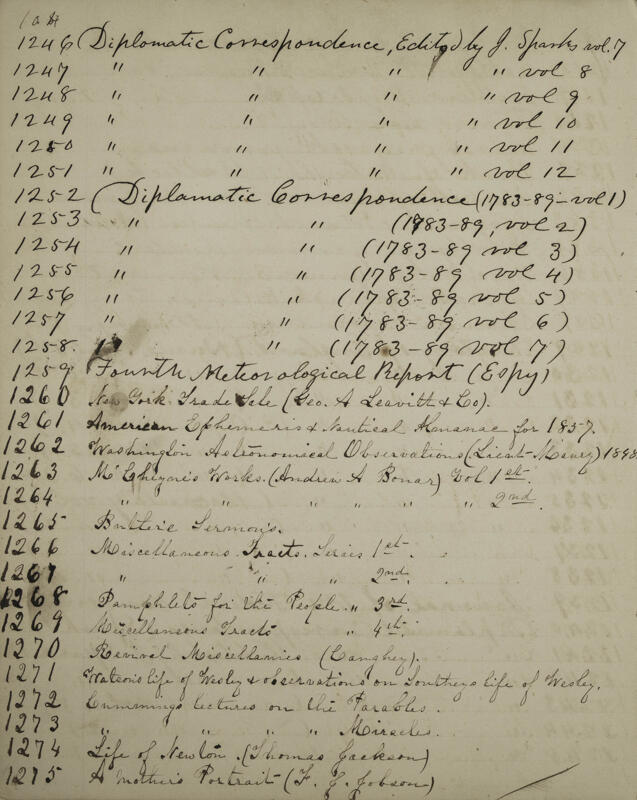 1246 Diplomatic Correspondence, Edited by J. Sparks vol. 7
1247 " " " " vol 8
1248 " " " " vol 9
1249 " " " " vol 10
1250 " " " " vol 11
1251 " " " " vol 12
1252 (Diplamatic Correspondence (1783-89-vol 1)
1253 " " (1783-89, vol 2)
1254 " " (1783-89 vol 3)
1255 " " (1783-89 vol 4)
1256 " " (1783-89 vol 5)
1257 " " (1783-89 vol 6)
1258. " " (1783-89 vol 7)
1259 Fourth Meteorological Report (Espy)
1260 New York Trade Sale (Geo. A Leavitt & Co).
1261 American Ephemeris & Nautical Almanac for 1857.
1262 Washington Astronomical Observations (Lieut-Maury)
1263 McCheyne's Works. (Andrew A Bonar) Vol 1st.
1264 " " " " " " 2nd.
1265 Butler's Sermons.
1266 Miscellaneous Tracts. Series 1st.
1267 " " " 2nd.
1268 Pamphlets for the People. " 3rd.
1269 Miscellaneous Tracts " 4th.
1270 Revival Miscellanies (Caughey).
1271 Watson's life of Wesley & observations on Southeys life of Wesley.
1272 Cummings lectures on the Parables.
1273 " " " " Miracles.
1274 Life of Newton. (Thomas Jackson)
1275 A Mother's Portrait (F. J. Jobson)